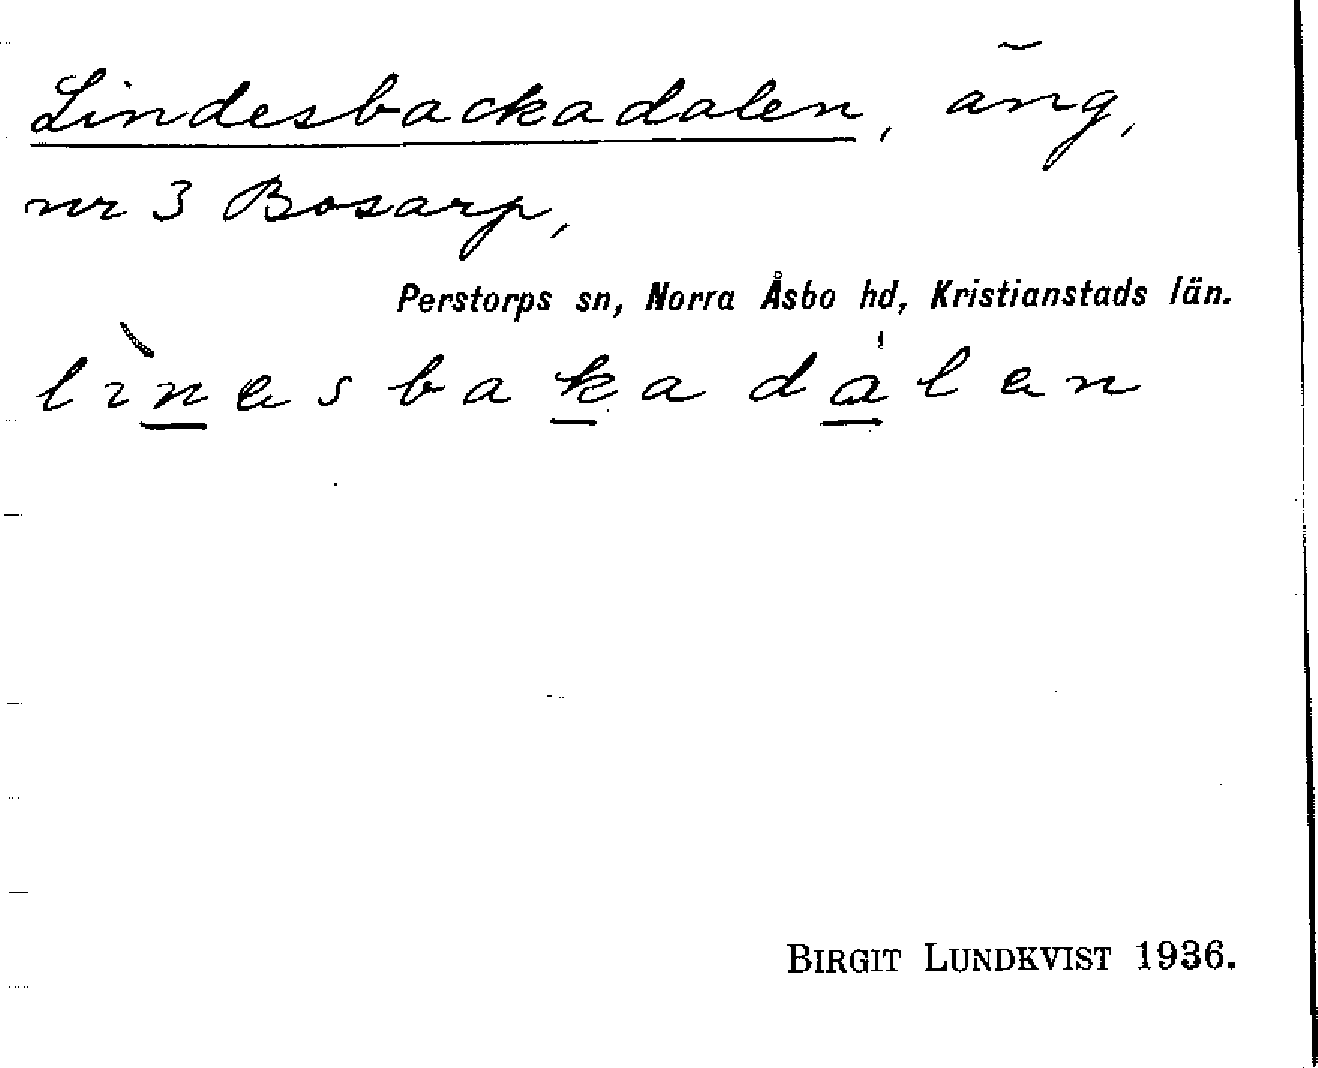 Lindesbackadalen, äng,
nr 3 Bosarp,
Perstorps sn, Norra Åsbo hd, Kristianstads län.
lìnesbakadálen
BIRGIT LUNDKVIST 1936.